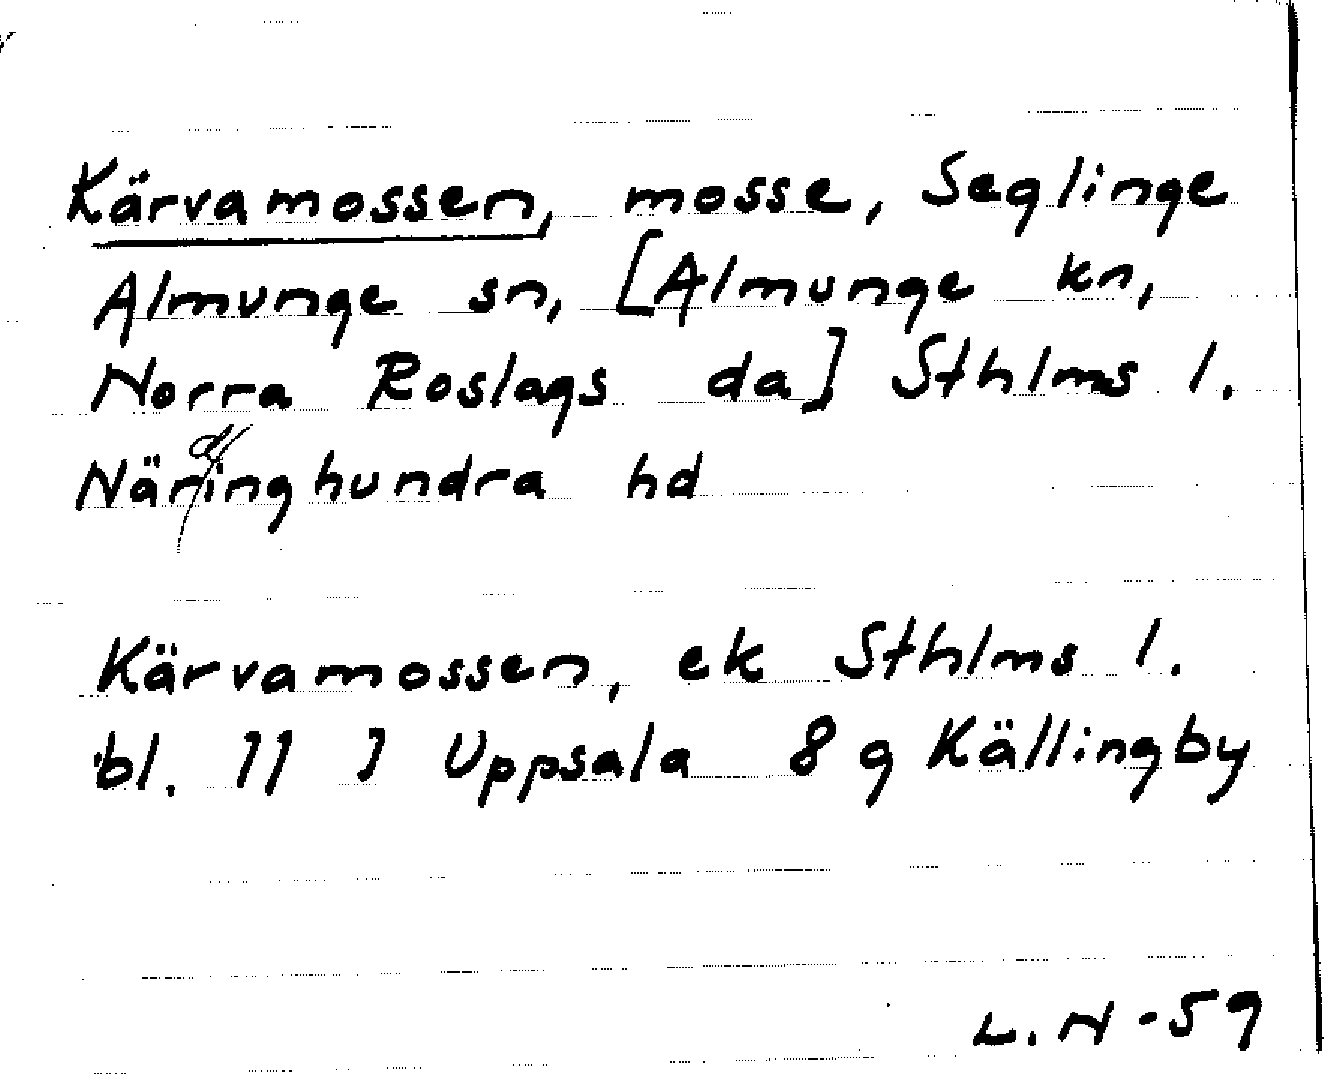 Kärvamossen, mosse, Seglinge
Almunge sn, [Almunge kn,
Norra Roslags da] Sthlms l.
Näringhundra hd
Kärvamossen, ek Sthlms l.
bl. 11 J Uppsala 8 g Källingby
L. N -59